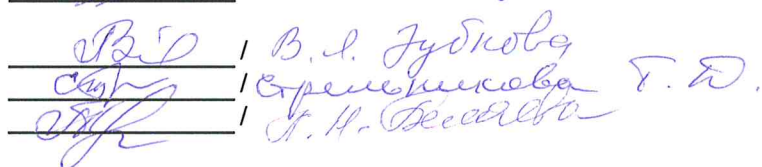 / В. Я. Зубкова
/ Стрельникова Т. Ю.
/ Л. Н. Беляева